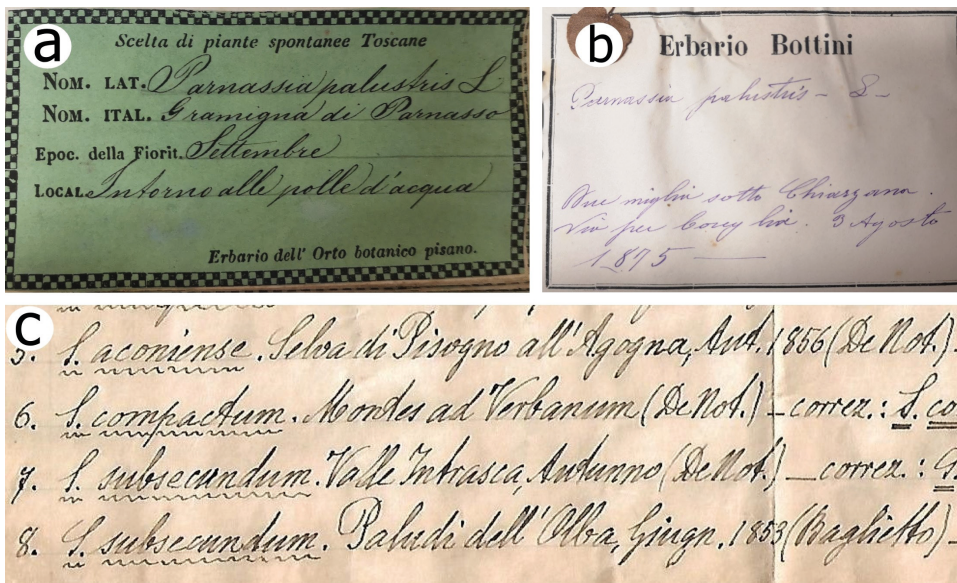 a
Scelta di piante spontanee Toscane
NOM. LAT. Parnassia palustris L
NOM. ITAL. Gramigna di Parnasso
Epoc. della Fiorit. Settembre
LOCAL. Intorno alle polle d'acqua
Erbario dell' Orto botanico pisano.
b
Erbario Bottini
Parnassia palustris - L -
Due miglia sotto Chiarzana.
Via per 3 Agosto
1875
c
5. S. aconiense. Selva di Pisogno all'Agogna, Aut. 1856 (De Not.) -
6. S. compactum. Montes ad Verbanum (De Not.) - correz.: S. co
7. S. subsecundum. Valle Intrasca, Autunno (De Not.) - correz.:
8. S. subsecundum. Paludi dell'Olba, Giugn. 1853 (Baglietto) -